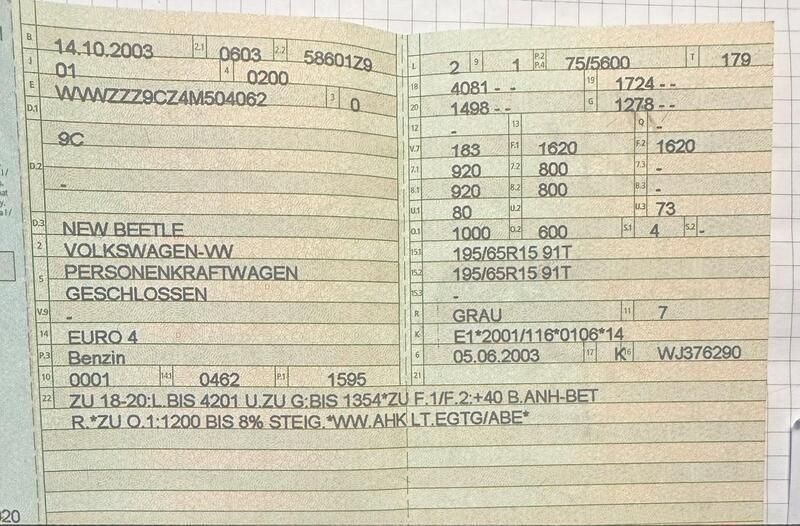 B 14.10.2003 2.1 0603 2.2 58601Z9
J 01 4 0200
E WVWZZZ9CZ4M504062 3 0
D.1
9C
D.2
-
D.3 NEW BEETLE
2 VOLKSWAGEN-VW
5 PERSONENKRAFTWAGEN
GESCHLOSSEN
V.9 -
14 EURO 4
P.3 Benzin
10 0001 14.1 0462 P.1 1595
L 2 9 1 P.2 P.4 75/5600 T 179
18 4081 - - 19 1724 - -
20 1498 - - G 1278 - -
12 - 13 Q -
V.7 183 F.1 1620 F.2 1620
7.1 920 7.2 800 7.3 -
8.1 920 8.2 800 8.3 -
U.1 80 U.2 U.3 73
O.1 1000 O.2 600 S.1 4 S.2 -
15.1 195/65R15 91T
15.2 195/65R15 91T
15.3 -
R GRAU 11 7
K E1*2001/116*0106*14
6 05.06.2003 17 K 16 WJ376290
21
22 ZU 18-20:L.BIS 4201 U.ZU G:BIS 1354*ZU F.1/F.2:+40 B.ANH-BET
R.*ZU O.1:1200 BIS 8% STEIG.*WW.AHK LT.EGTG/ABE*